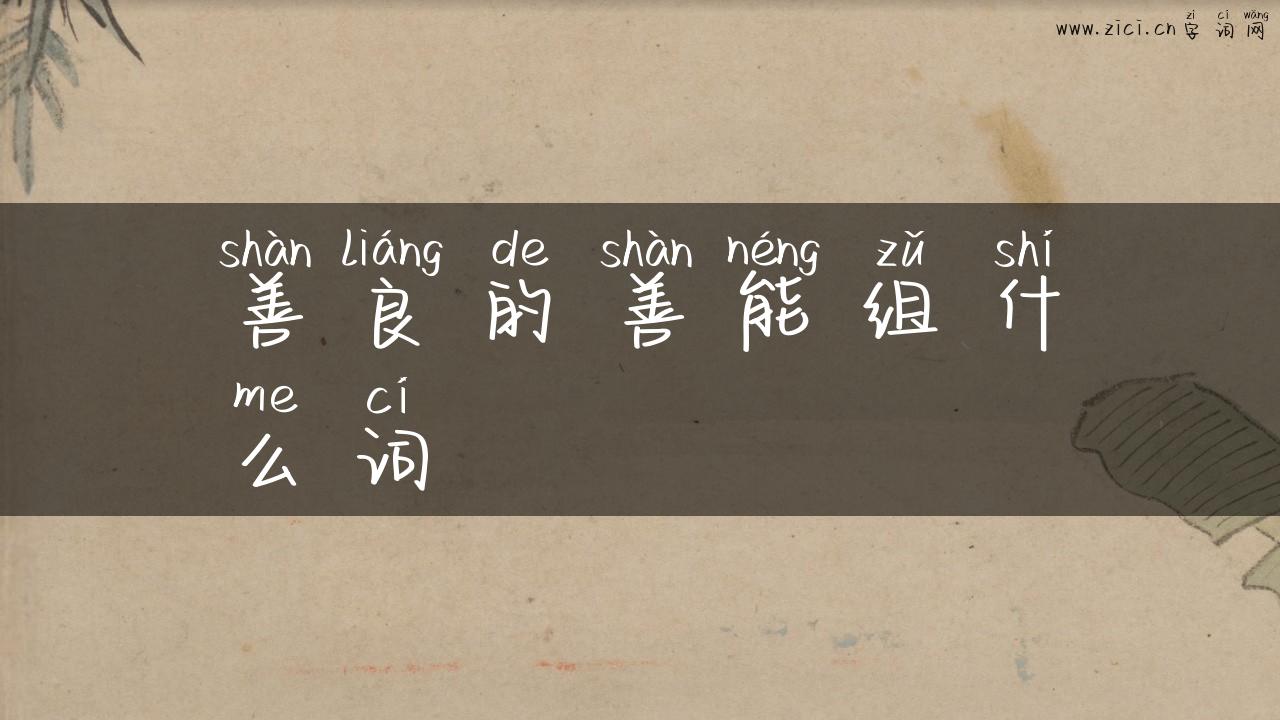 zì cí wǎng
www.zici.cn 字词网
shàn liáng de shàn néng zǔ shí
善良的善能组什
me cí
么词